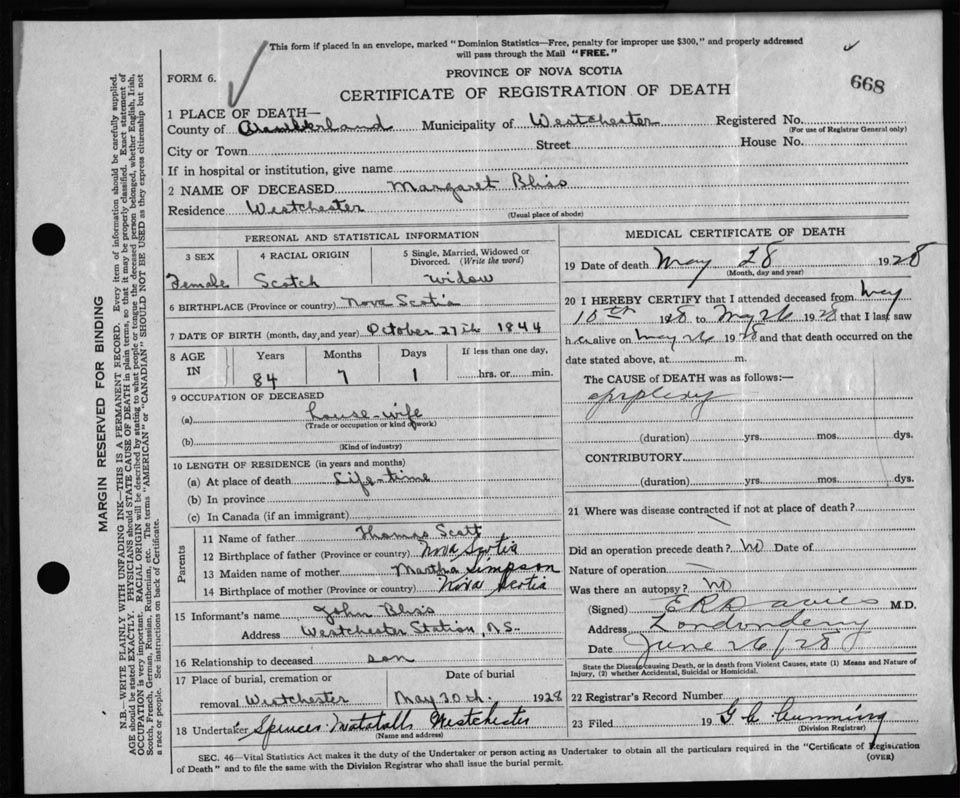 This form if placed in an envelope, marked "Dominion Statistics—Free, penalty for improper use $300," and properly addressed
will pass through the Mail "FREE."
FORM 6.
PROVINCE OF NOVA SCOTIA
668
CERTIFICATE OF REGISTRATION OF DEATH
1 PLACE OF DEATH—
County of Cumberland Municipality of Westchester Registered No.
(For use of Registrar General only)
City or Town Street House No.
If in hospital or institution, give name
2 NAME OF DECEASED Margaret Bliss
Residence Westchester
(Usual place of abode)
PERSONAL AND STATISTICAL INFORMATION
3 SEX 4 RACIAL ORIGIN 5 Single, Married, Widowed or
Divorced. (Write the word)
Female Scotch Widow
6 BIRTHPLACE (Province or country) Nova Scotia
7 DATE OF BIRTH (month, day, and year) October 27th 1844
8 AGE IN Years Months Days If less than one day,
84 7 1 hrs. or min.
9 OCCUPATION OF DECEASED
(a) house-wife
(Trade or occupation or kind of work)
(b)
(Kind of industry)
10 LENGTH OF RESIDENCE (in years and months)
(a) At place of death Life-time
(b) In province
(c) In Canada (if an immigrant)
Parents
11 Name of father Thomas Scott
12 Birthplace of father (Province or country) Nova Scotia
13 Maiden name of mother Martha Simpson
14 Birthplace of mother (Province or country) Nova Scotia
15 Informant's name John Bliss
Address Westchester Station, N.S.
16 Relationship to deceased son
17 Place of burial, cremation or Date of burial
removal Westchester May 30th 1928
18 Undertaker Spences Westchester
(Name and address)
MEDICAL CERTIFICATE OF DEATH
19 Date of death May 28 1928
(Month, day and year)
20 I HEREBY CERTIFY that I attended deceased from May
10th 1928 to May 26 1928 that I last saw
her alive on May 26 1928 and that death occurred on the
date stated above, at m.
The CAUSE of DEATH was as follows:—
apoplexy
(duration) yrs. mos. dys.
CONTRIBUTORY
(duration) yrs. mos. dys.
21 Where was disease contracted if not at place of death?
Did an operation precede death? No Date of
Nature of operation
Was there an autopsy? No
(Signed) E R Davies M.D.
Address Londonderry
Date June 26/28
State the Disease causing Death, or in death from Violent Causes, state (1) Means and Nature of
Injury, (2) whether Accidental, Suicidal or Homicidal.
22 Registrar's Record Number
23 Filed 19 G C Cumming
(Division Registrar)
SEC. 46—Vital Statistics Act makes it the duty of the Undertaker or person acting as Undertaker to obtain all the particulars required in the "Certificate of Registration
of Death" and to file the same with the Division Registrar who shall issue the burial permit.
(OVER)
MARGIN RESERVED FOR BINDING
N.B.—WRITE PLAINLY WITH UNFADING INK—THIS IS A PERMANENT RECORD. Every item of information should be carefully supplied.
AGE should be stated EXACTLY. PHYSICIANS should STATE CAUSE OF DEATH in plain terms, so that it may be properly classified. Exact statement of
OCCUPATION is very important. RACIAL ORIGIN will be described by stating to what people or tongue the deceased person belonged, whether English, Irish,
Scotch, French, German, Russian, Ruthenian, etc. The terms "AMERICAN" or "CANADIAN" SHOULD NOT BE USED as they express citizenship but not
a race or people. See instructions on back of Certificate.